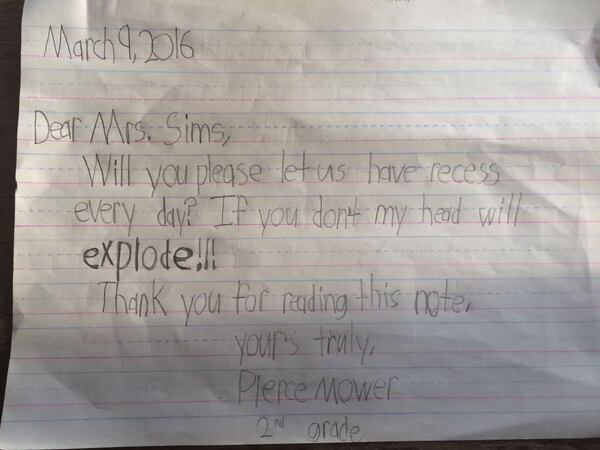 March 9, 2016
Dear Mrs. Sims,
Will you please let us have recess
every day? If you don't my head will
explode!!!
Thank you for reading this note,
your's truly,
Pierce Mower
2nd grade